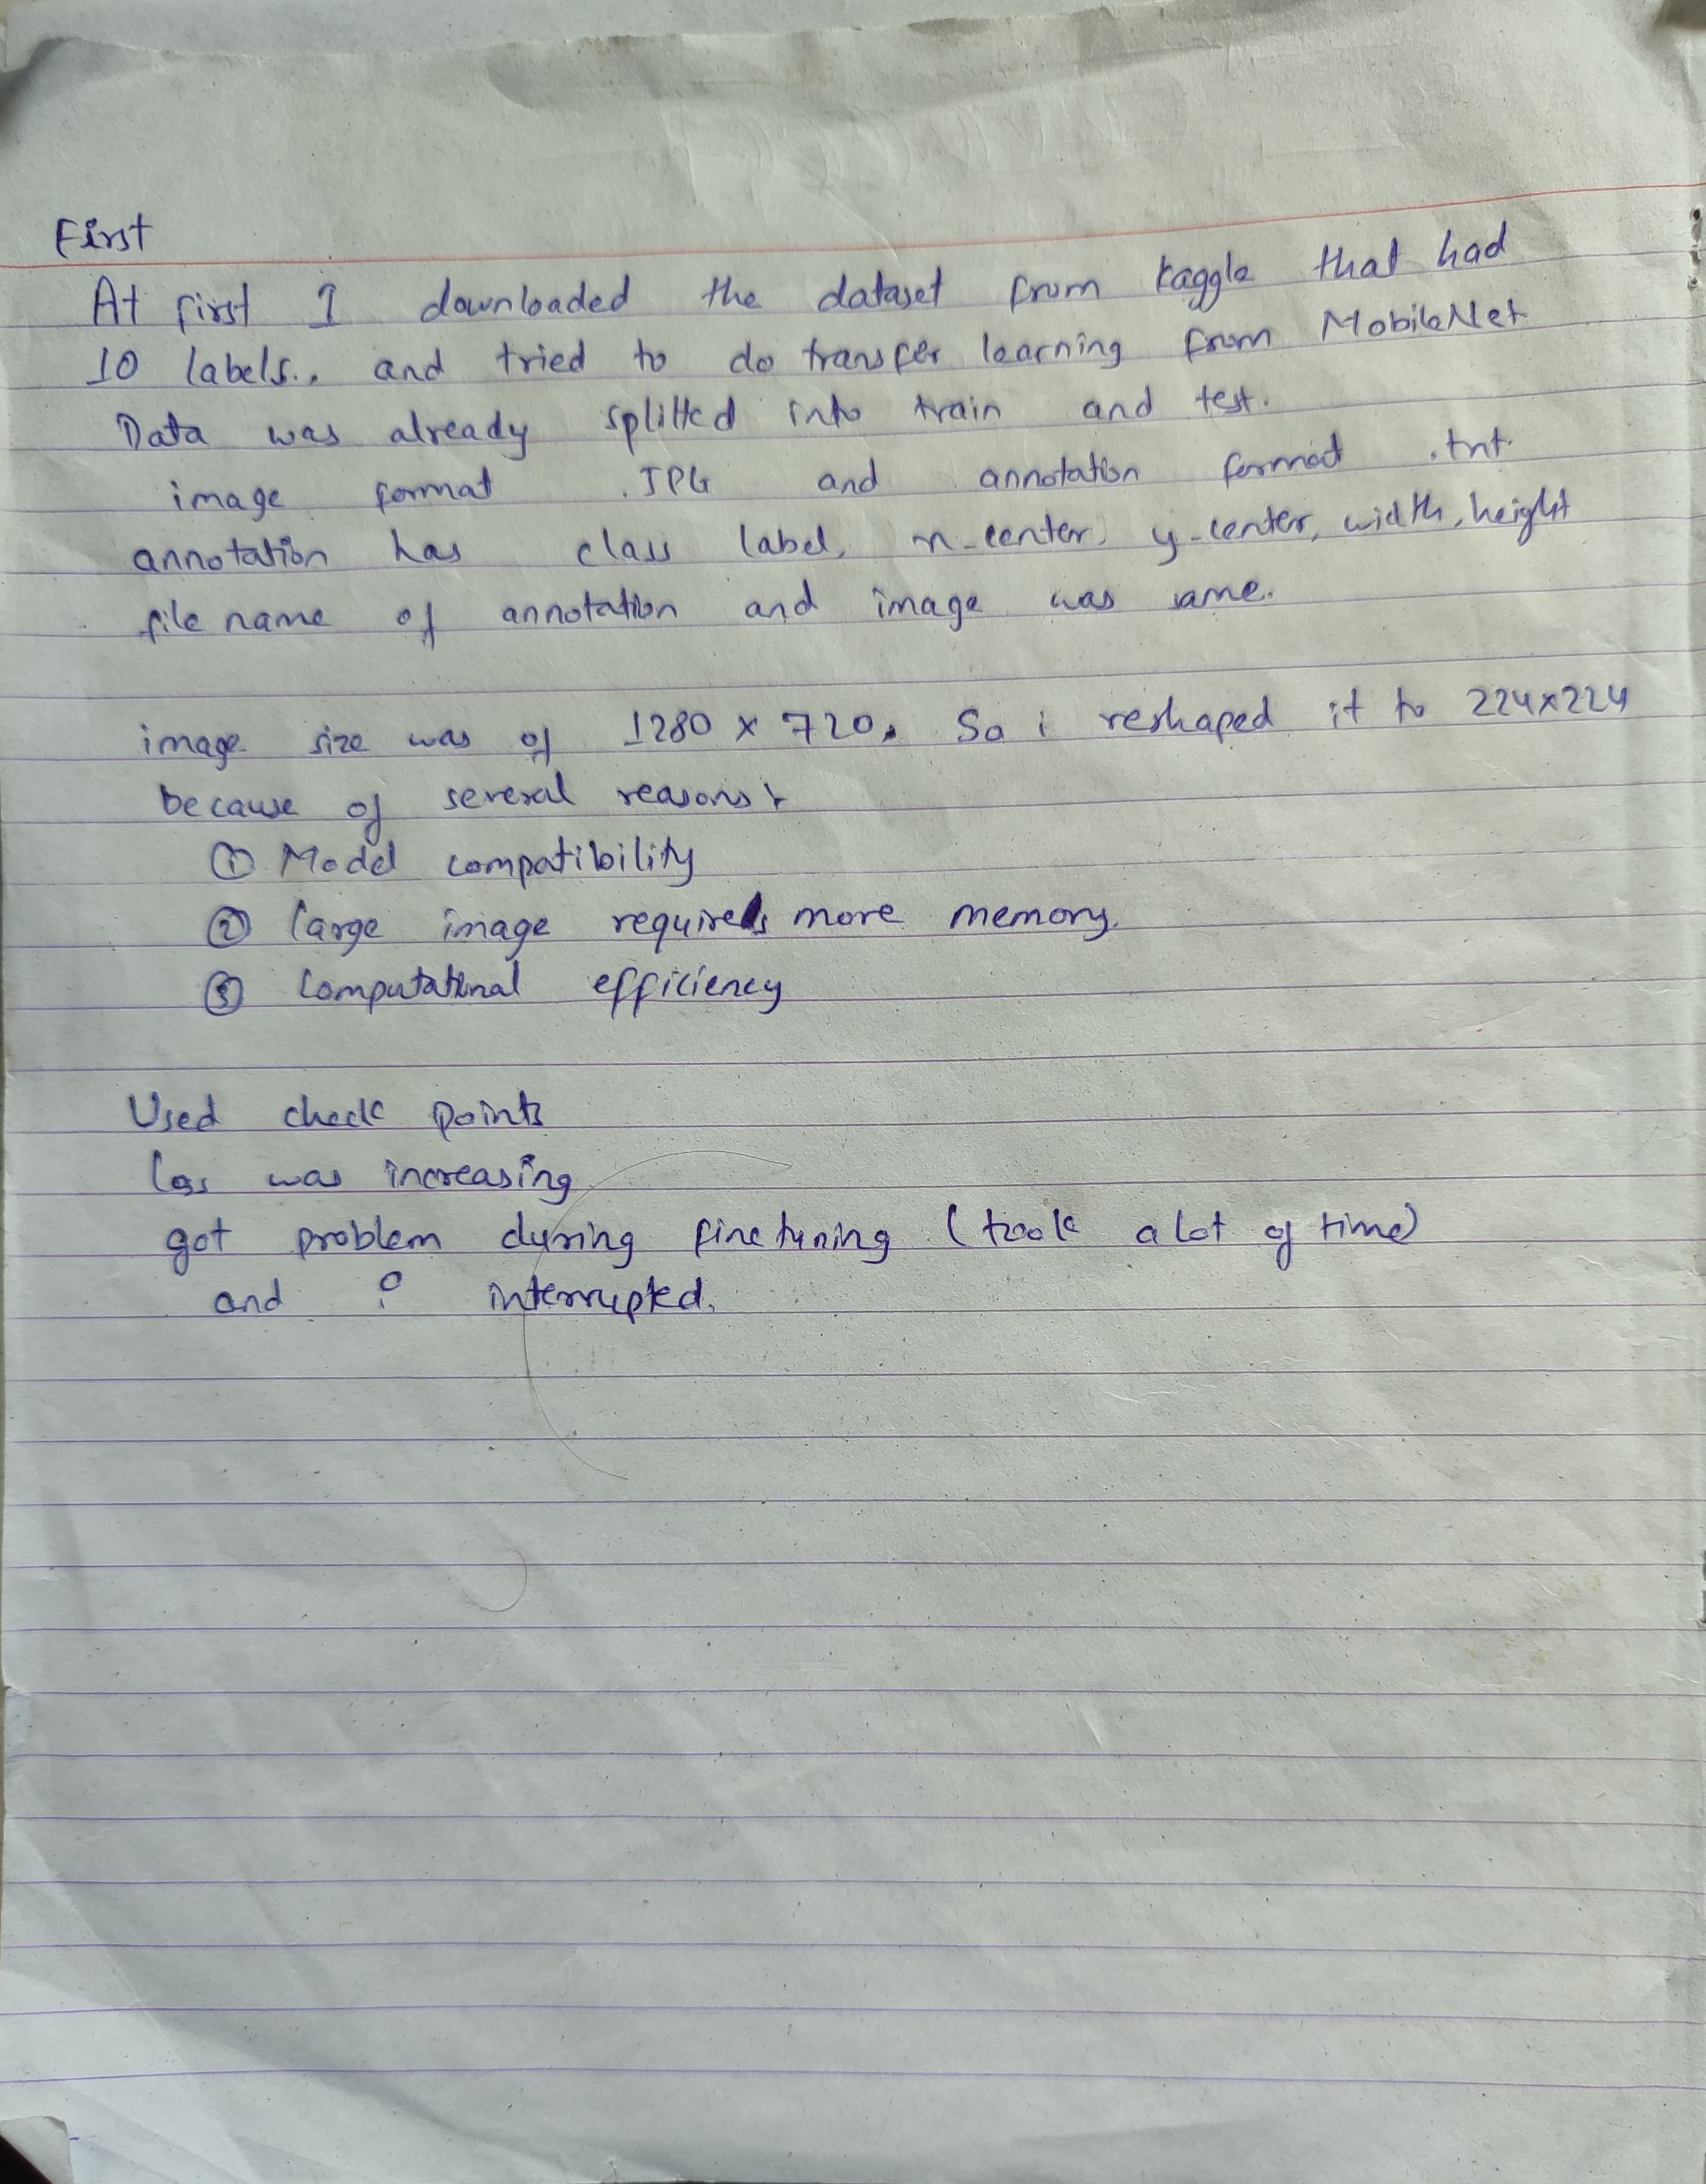 First
At first I downloaded the dataset from kaggle that had
10 labels., and tried to do transfer learning from MobileNet
Data was already splitted into train and test.
image format .JPG and annotation format .txt.
annotation has class label, x-center, y-center, width, height
file name of annotation and image was same.
image size was of 1280 x 720. So i reshaped it to 224x224
because of several reasons:
① Model compatibility
② large image requires more memory.
③ Computational efficiency
Used check points
loss was increasing
got problem during finetuning (took a lot of time)
and i interrupted.